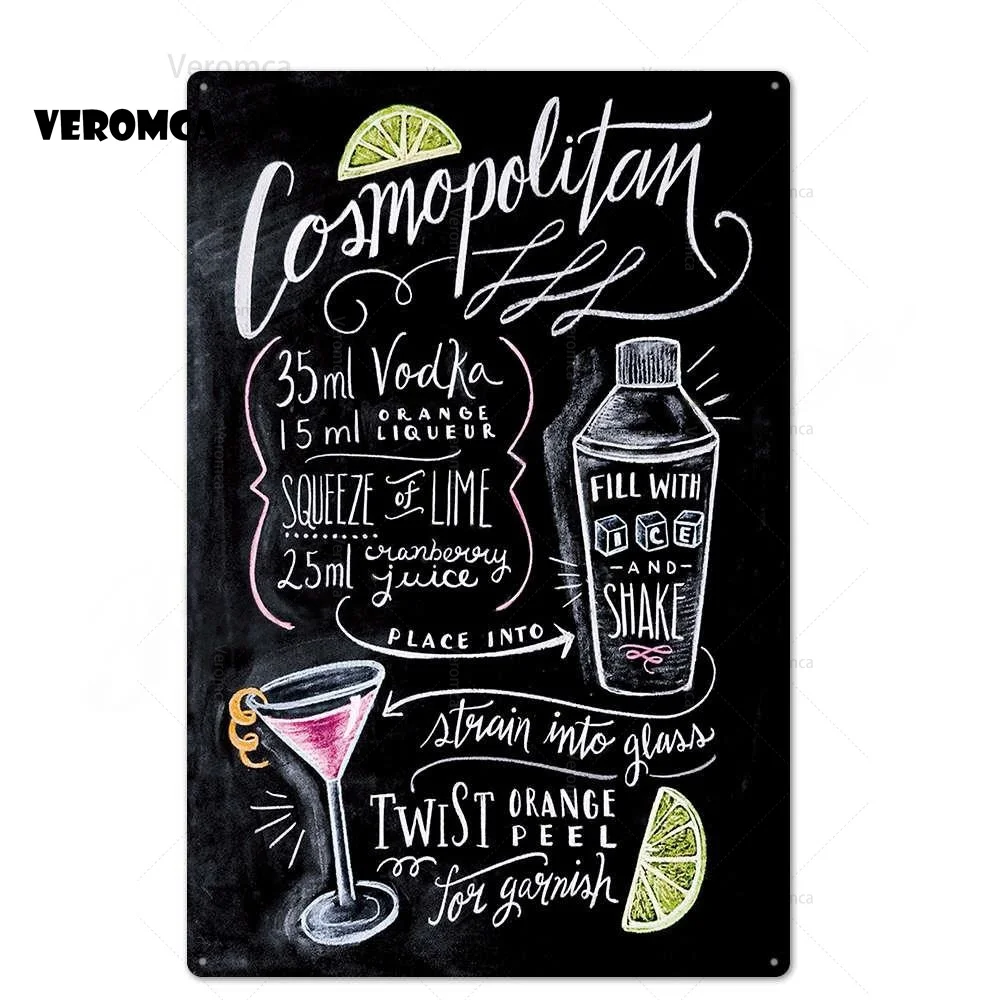 Veromca
VEROMCA
Cosmopolitan
35ml Vodka
15 ml ORANGE
LIQUEUR
SQUEEZE of LIME
25ml cranberry
juice
PLACE INTO
FILL WITH
ICE
-AND-
SHAKE
strain into glass
TWIST ORANGE
PEEL
for garnish